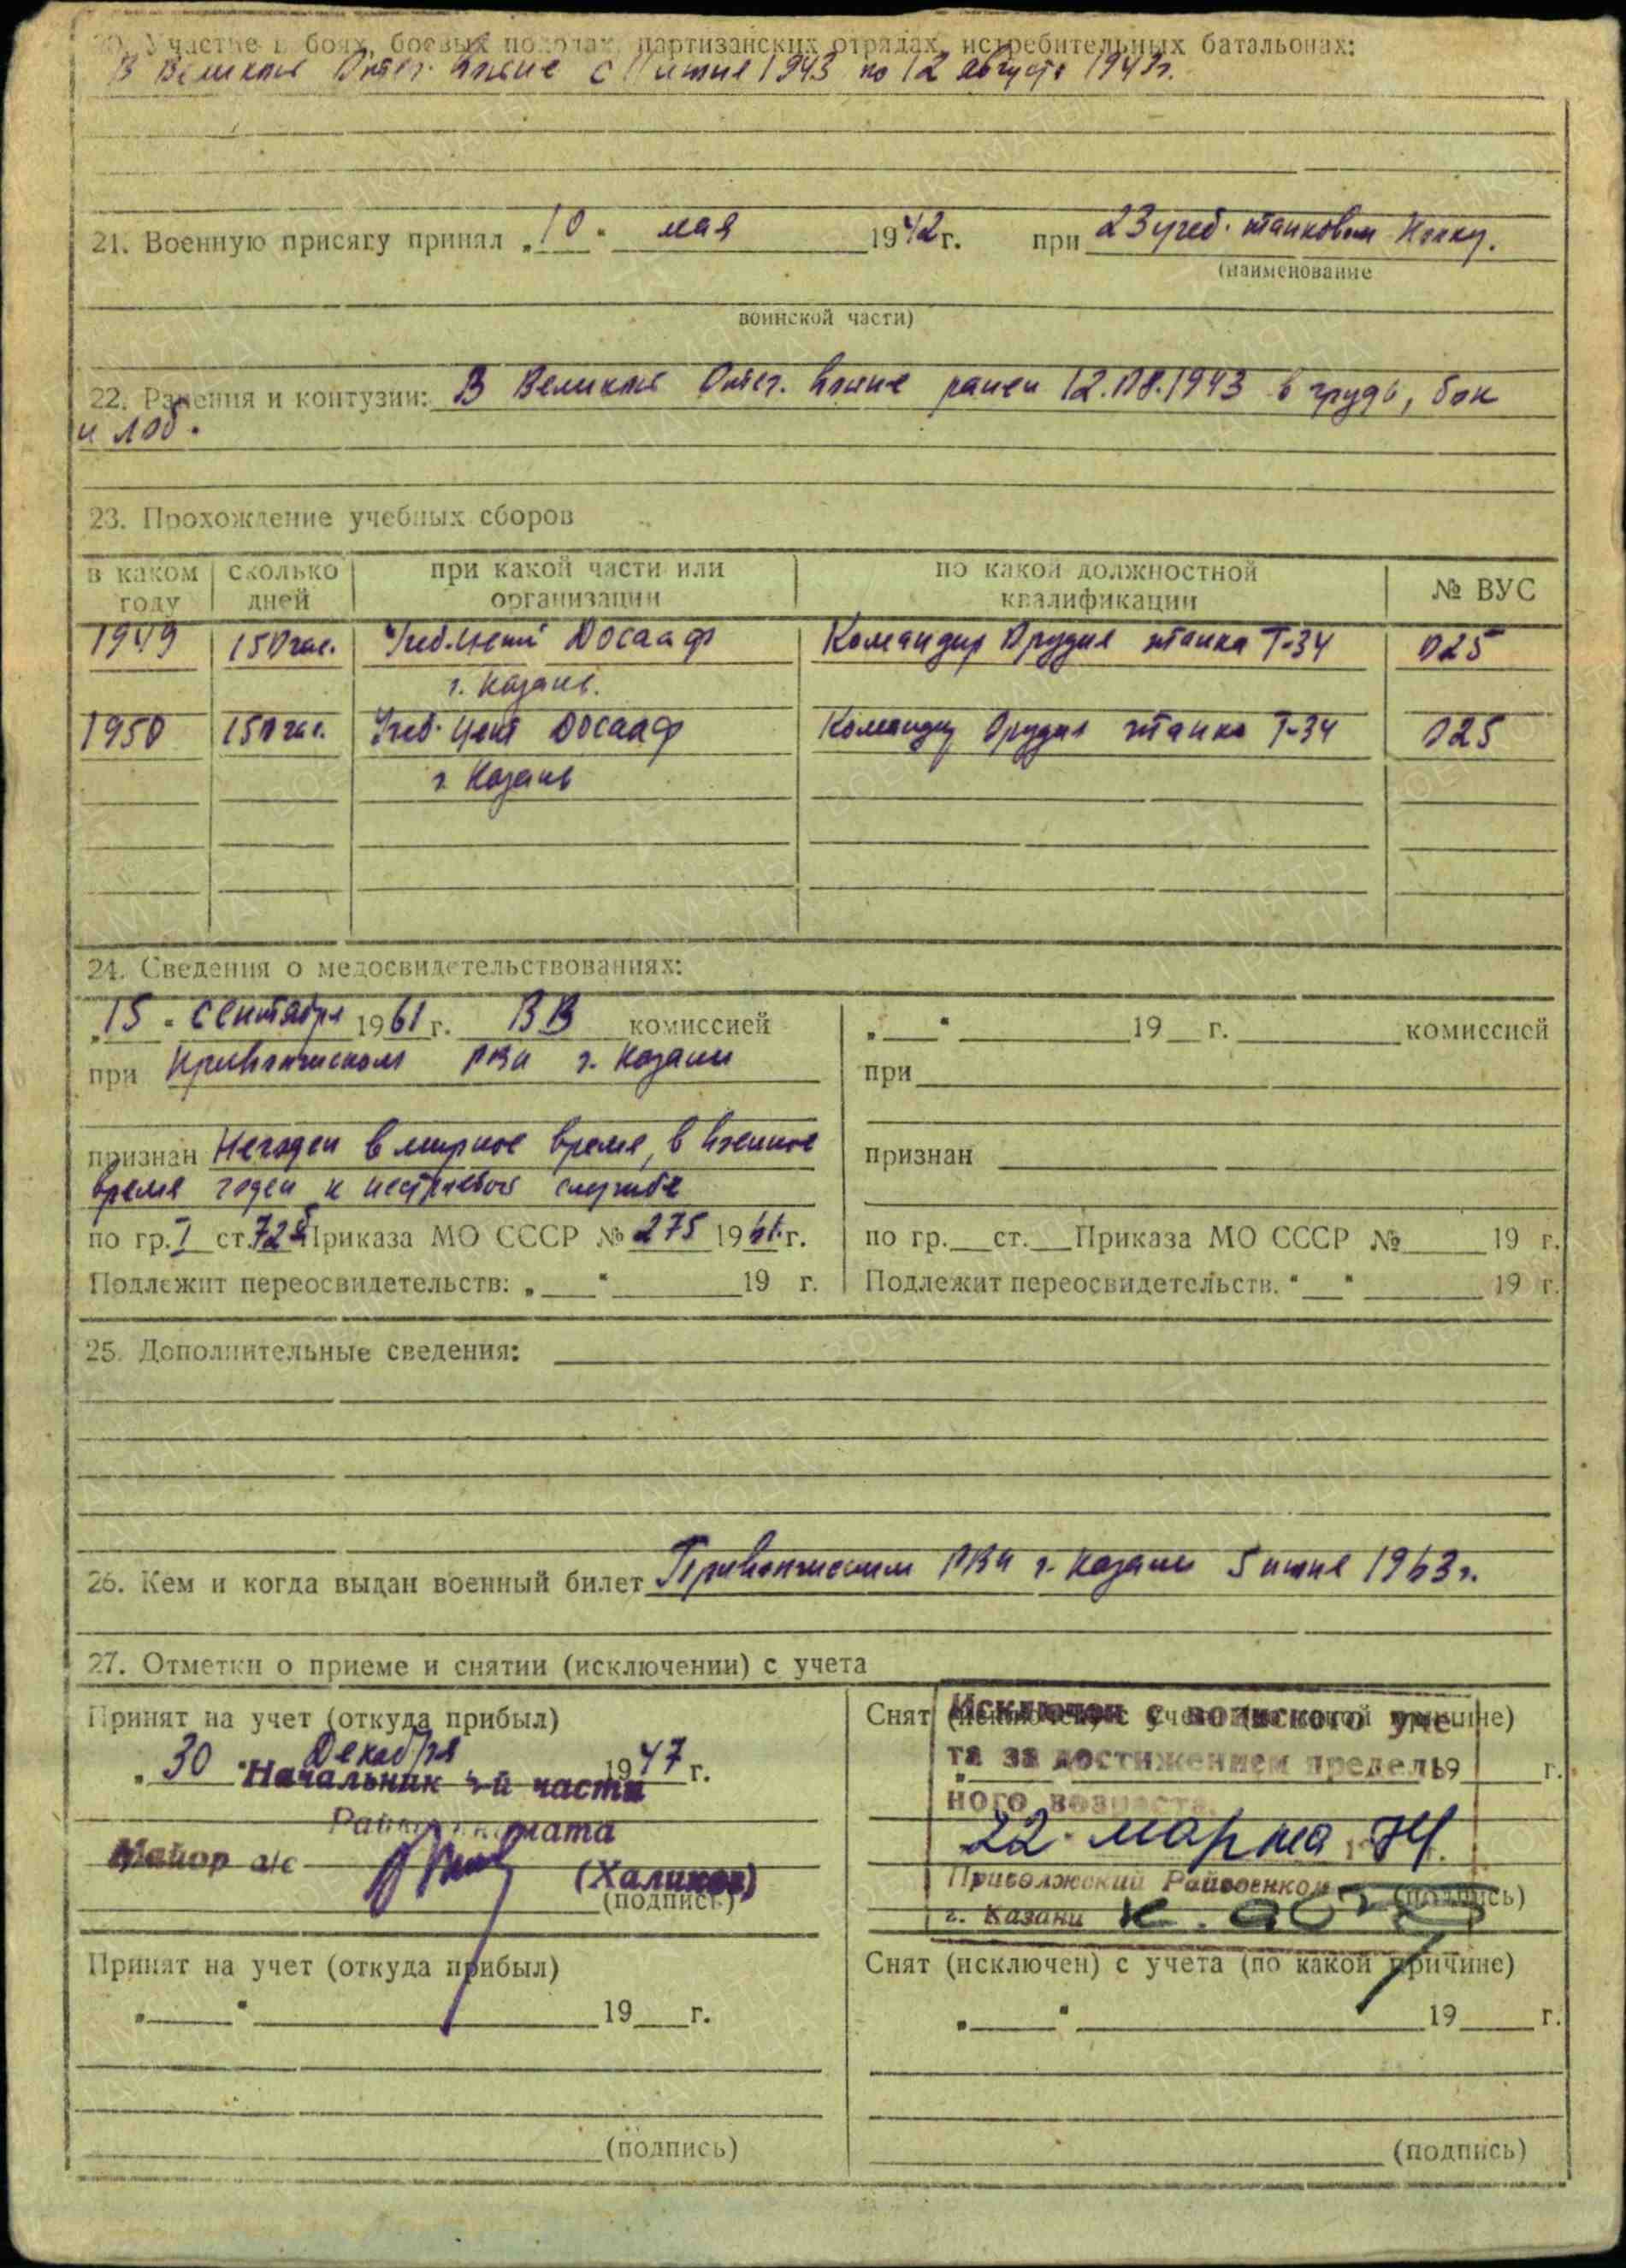 20. Участие в боях, боевых походах, партизанских отрядах, истребительных батальонах:
В Великой Отеч. войне с июня 1943 по 12 августа 1943г.
21. Военную присягу принял „10“ мая 1942г. при 23 учеб. танковом полку.
(наименование
воинской части)
22. Ранения и контузии: В Великой Отеч. войне ранен 12.08.1943 в грудь, бок
и лоб.
23. Прохождение учебных сборов
в каком году | сколько дней | при какой части или организации | по какой должностной квалификации | № ВУС
1949 | 150 час. | Учеб. цент ДОСААФ | Командир Орудия танка Т-34 | 025
г. Казань.
1950 | 150 час. | Учеб. цент ДОСААФ | Командир Орудия танка Т-34 | 025
г. Казань
24. Сведения о медосвидетельствованиях:
„15“ сентября 1961г. ВВ комиссией
при Приволжском РВК г. Казани
признан Негоден в мирное время, в военное
время годен к нестроевой службе
по гр. I ст. 72б Приказа МО СССР № 275 1961.г.
Подлежит переосвидетельств: „ “ 19 г.
„ “ 19 г. комиссией
при
признан
по гр. ст. Приказа МО СССР № 19 г.
Подлежит переосвидетельств. “ “ 19 г.
25. Дополнительные сведения:
26. Кем и когда выдан военный билет Приволжским РВК г. Казани 5 июня 1963г.
27. Отметки о приеме и снятии (исключении) с учета
Принят на учет (откуда прибыл)
„30“ Декабря 1947г.
Начальник части
Райвоенкомата
Майор а/с (Халиков)
(подпись)
Снят (исключен) с учета (по какой причине)
Исключен с воинского уче-
та за достижением предель-
ного возраста.
22 марта 74.
Приволжский Райвоенком
г. Казани
(подпись)
Принят на учет (откуда прибыл)
„ “ 19 г.
(подпись)
Снят (исключен) с учета (по какой причине)
„ “ 19 г.
(подпись)